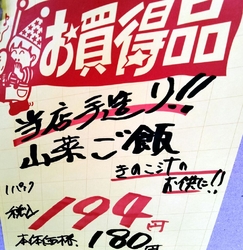 お買得品
当店手造り!!
山菜ご飯
きのこ汁の
お供に!!
1パック
税込194円
本体価格180円